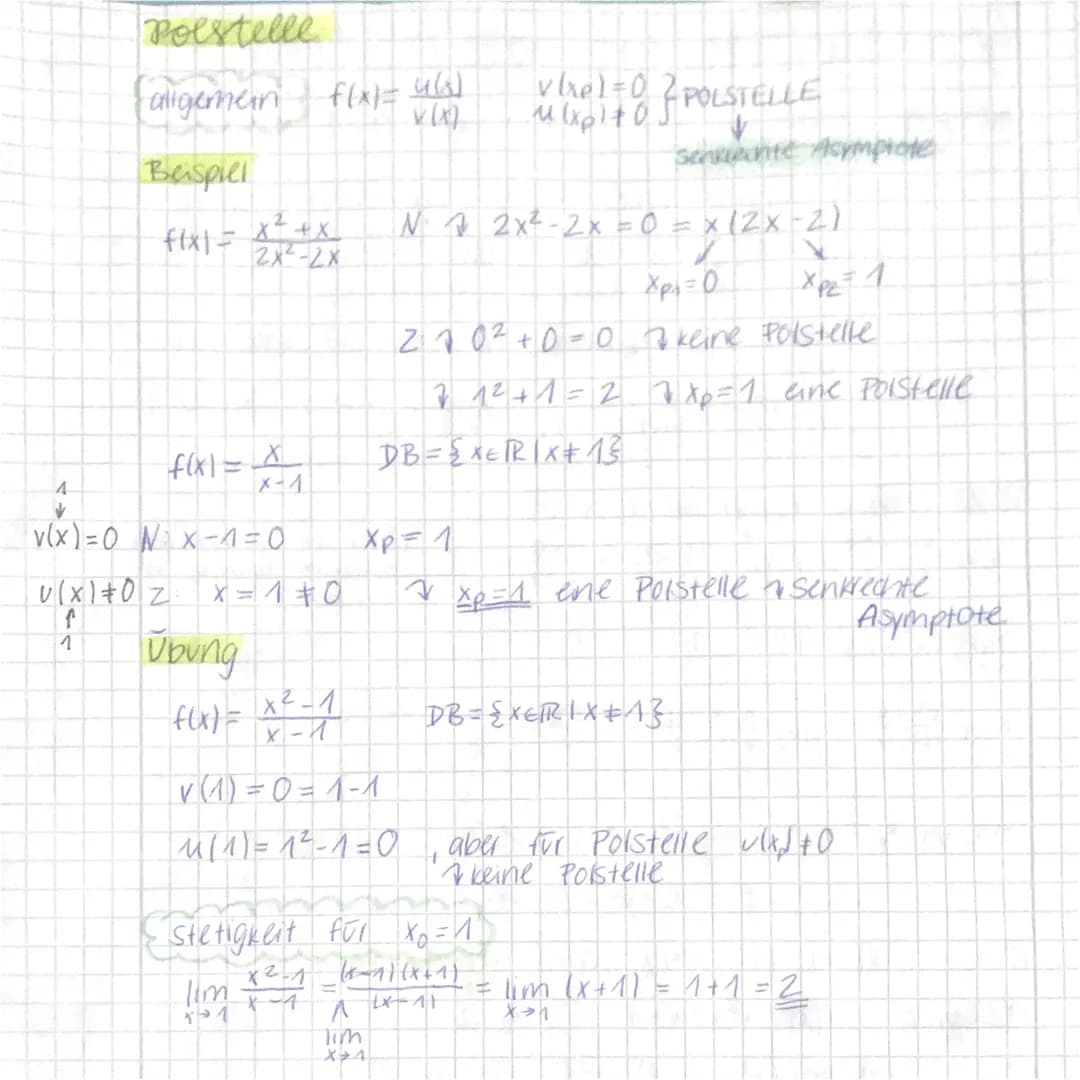 Polstelle
allgemein f(x) = u(x)/v(x) v(xp) = 0 } POLSTELLE
u(xp) ≠ 0
↓
senkrechte Asymptote
Beispiel
f(x) = (x² + x)/(2x² - 2x) N: ↴ 2x² - 2x = 0 = x(2x - 2)
xp1 = 0 xp2 = 1
Z: ↴ 0² + 0 = 0 ↴ keine Polstelle
↴ 1² + 1 = 2 ↴ xp = 1 eine Polstelle
f(x) = x/(x - 1) DB = {x ∈ ℝ | x ≠ 1}
1
↓
v(x) = 0 N: x - 1 = 0 xp = 1
u(x) ≠ 0 Z: x = 1 ≠ 0 ↴ xp = 1 eine Polstelle ↴ senkrechte
↑
1
Asymptote
Übung
f(x) = (x² - 1)/(x - 1) DB = {x ∈ ℝ | x ≠ 1}
v(1) = 0 = 1 - 1
u(1) = 1² - 1 = 0 , aber für Polstelle u(xp) ≠ 0
↴ keine Polstelle
Stetigkeit für x₀ = 1
lim x→1 (x² - 1)/(x - 1) = (x - 1)(x + 1)/(x - 1) = lim x→1 (x + 1) = 1 + 1 = 2
∧
lim
x→1